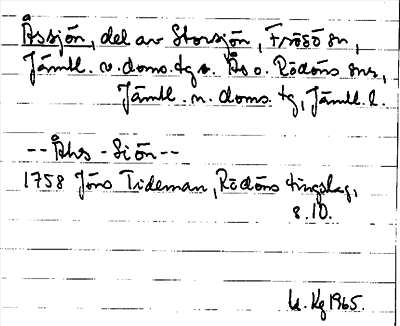 Åssjön, del av Storsjön, Frösö sn,
Jämtl. v. doms. tg o. Ås o. Rödöns snr,
Jämtl. n. doms. tg, Jämtl. l.
-- Åhs - Siön --
1758 Jöns Tideman, Rödöns tingslag,
s. 10.
Kg 1965.